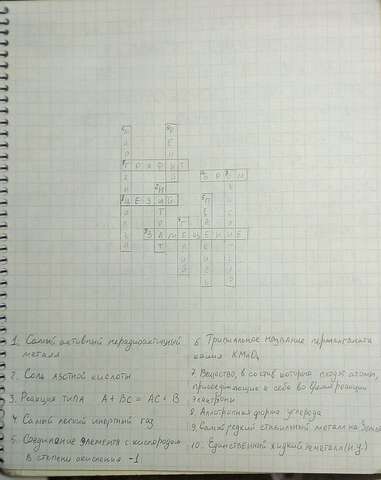 1. Самый активный нерадиоактивный
металл
2. Соль азотной кислоты
3. Реакция типа A + BC = AC + B
4. Самый легкий инертный газ
5. Соединение элемента с кислородом
в степени окисления -1
6. Тривиальное название перманганата
калия KMnO₄
7. Вещество, в состав которого входят атомы,
присоединяющие к себе во время реакции
электроны
8. Аллотропная форма углерода
9. Самый редкий стабильный металл на Земле
10. Единственный жидкий неметалл (н.у.)
ГРАФИТ
БРОМ
ЦЕЗИЙ
ЗАМЕЩЕНИЕ